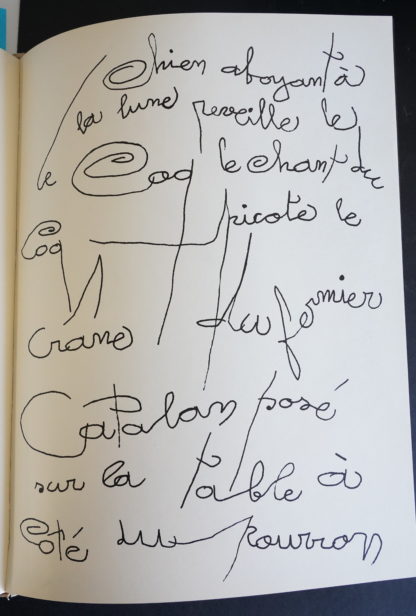 le chien aboyant à
la lune reveille le
Coq le chant du
Coq picote le
Crâne du fermier
Catalan posé
sur la table à
Coté du pourron